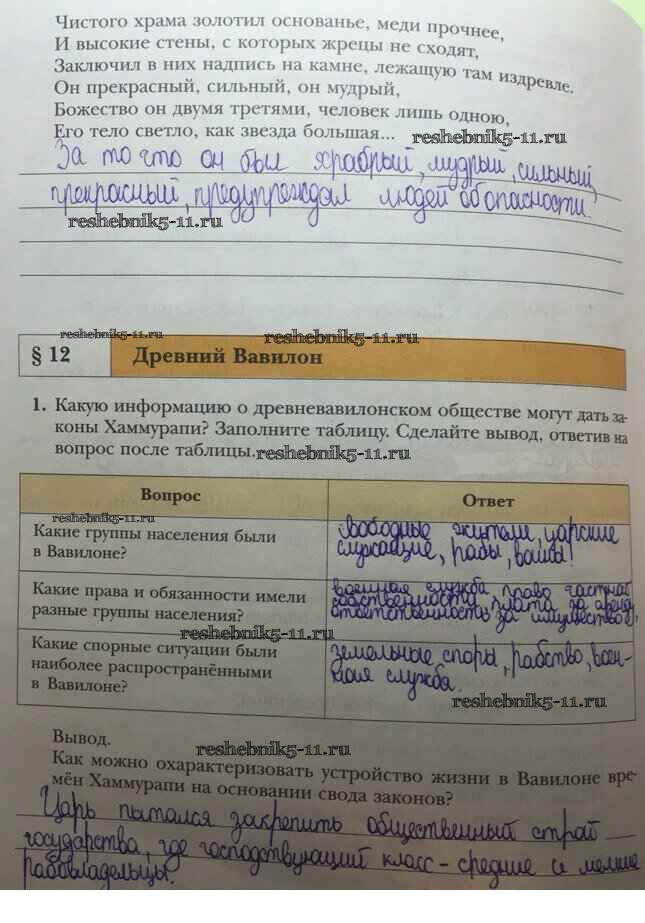 Чистого храма золотил основанье, меди прочнее,
И высокие стены, с которых жрецы не сходят,
Заключил в них надпись на камне, лежащую там издревле.
Он прекрасный, сильный, он мудрый,
Божество он двумя третями, человек лишь одною,
Его тело светло, как звезда большая... reshebnik5-11.ru
За то что он был храбрый, мудрый, сильный,
прекрасный, предупреждал людей об опасности.
reshebnik5-11.ru
reshebnik5-11.ru
reshebnik5-11.ru
§ 12 Древний Вавилон
1. Какую информацию о древневавилонском обществе могут дать за-
коны Хаммурапи? Заполните таблицу. Сделайте вывод, ответив на
вопрос после таблицы. reshebnik5-11.ru
Вопрос
Ответ
reshebnik5-11.ru
Какие группы населения были
в Вавилоне?
Свободные жители, царские
служащие, рабы,
Какие права и обязанности имели
разные группы населения?
военная служба, право частной
собственности, плата за аренду,
ответственность за имущество
reshebnik5-11.ru
Какие спорные ситуации были
наиболее распространёнными
в Вавилоне?
земельные споры, рабство, воен-
ная служба.
reshebnik5-11.ru
Вывод.
reshebnik5-11.ru
Как можно охарактеризовать устройство жизни в Вавилоне вре-
мён Хаммурапи на основании свода законов?
Царь пытался закрепить общественный строй
государства, где господствующий класс - средние и мелкие
рабовладельцы.